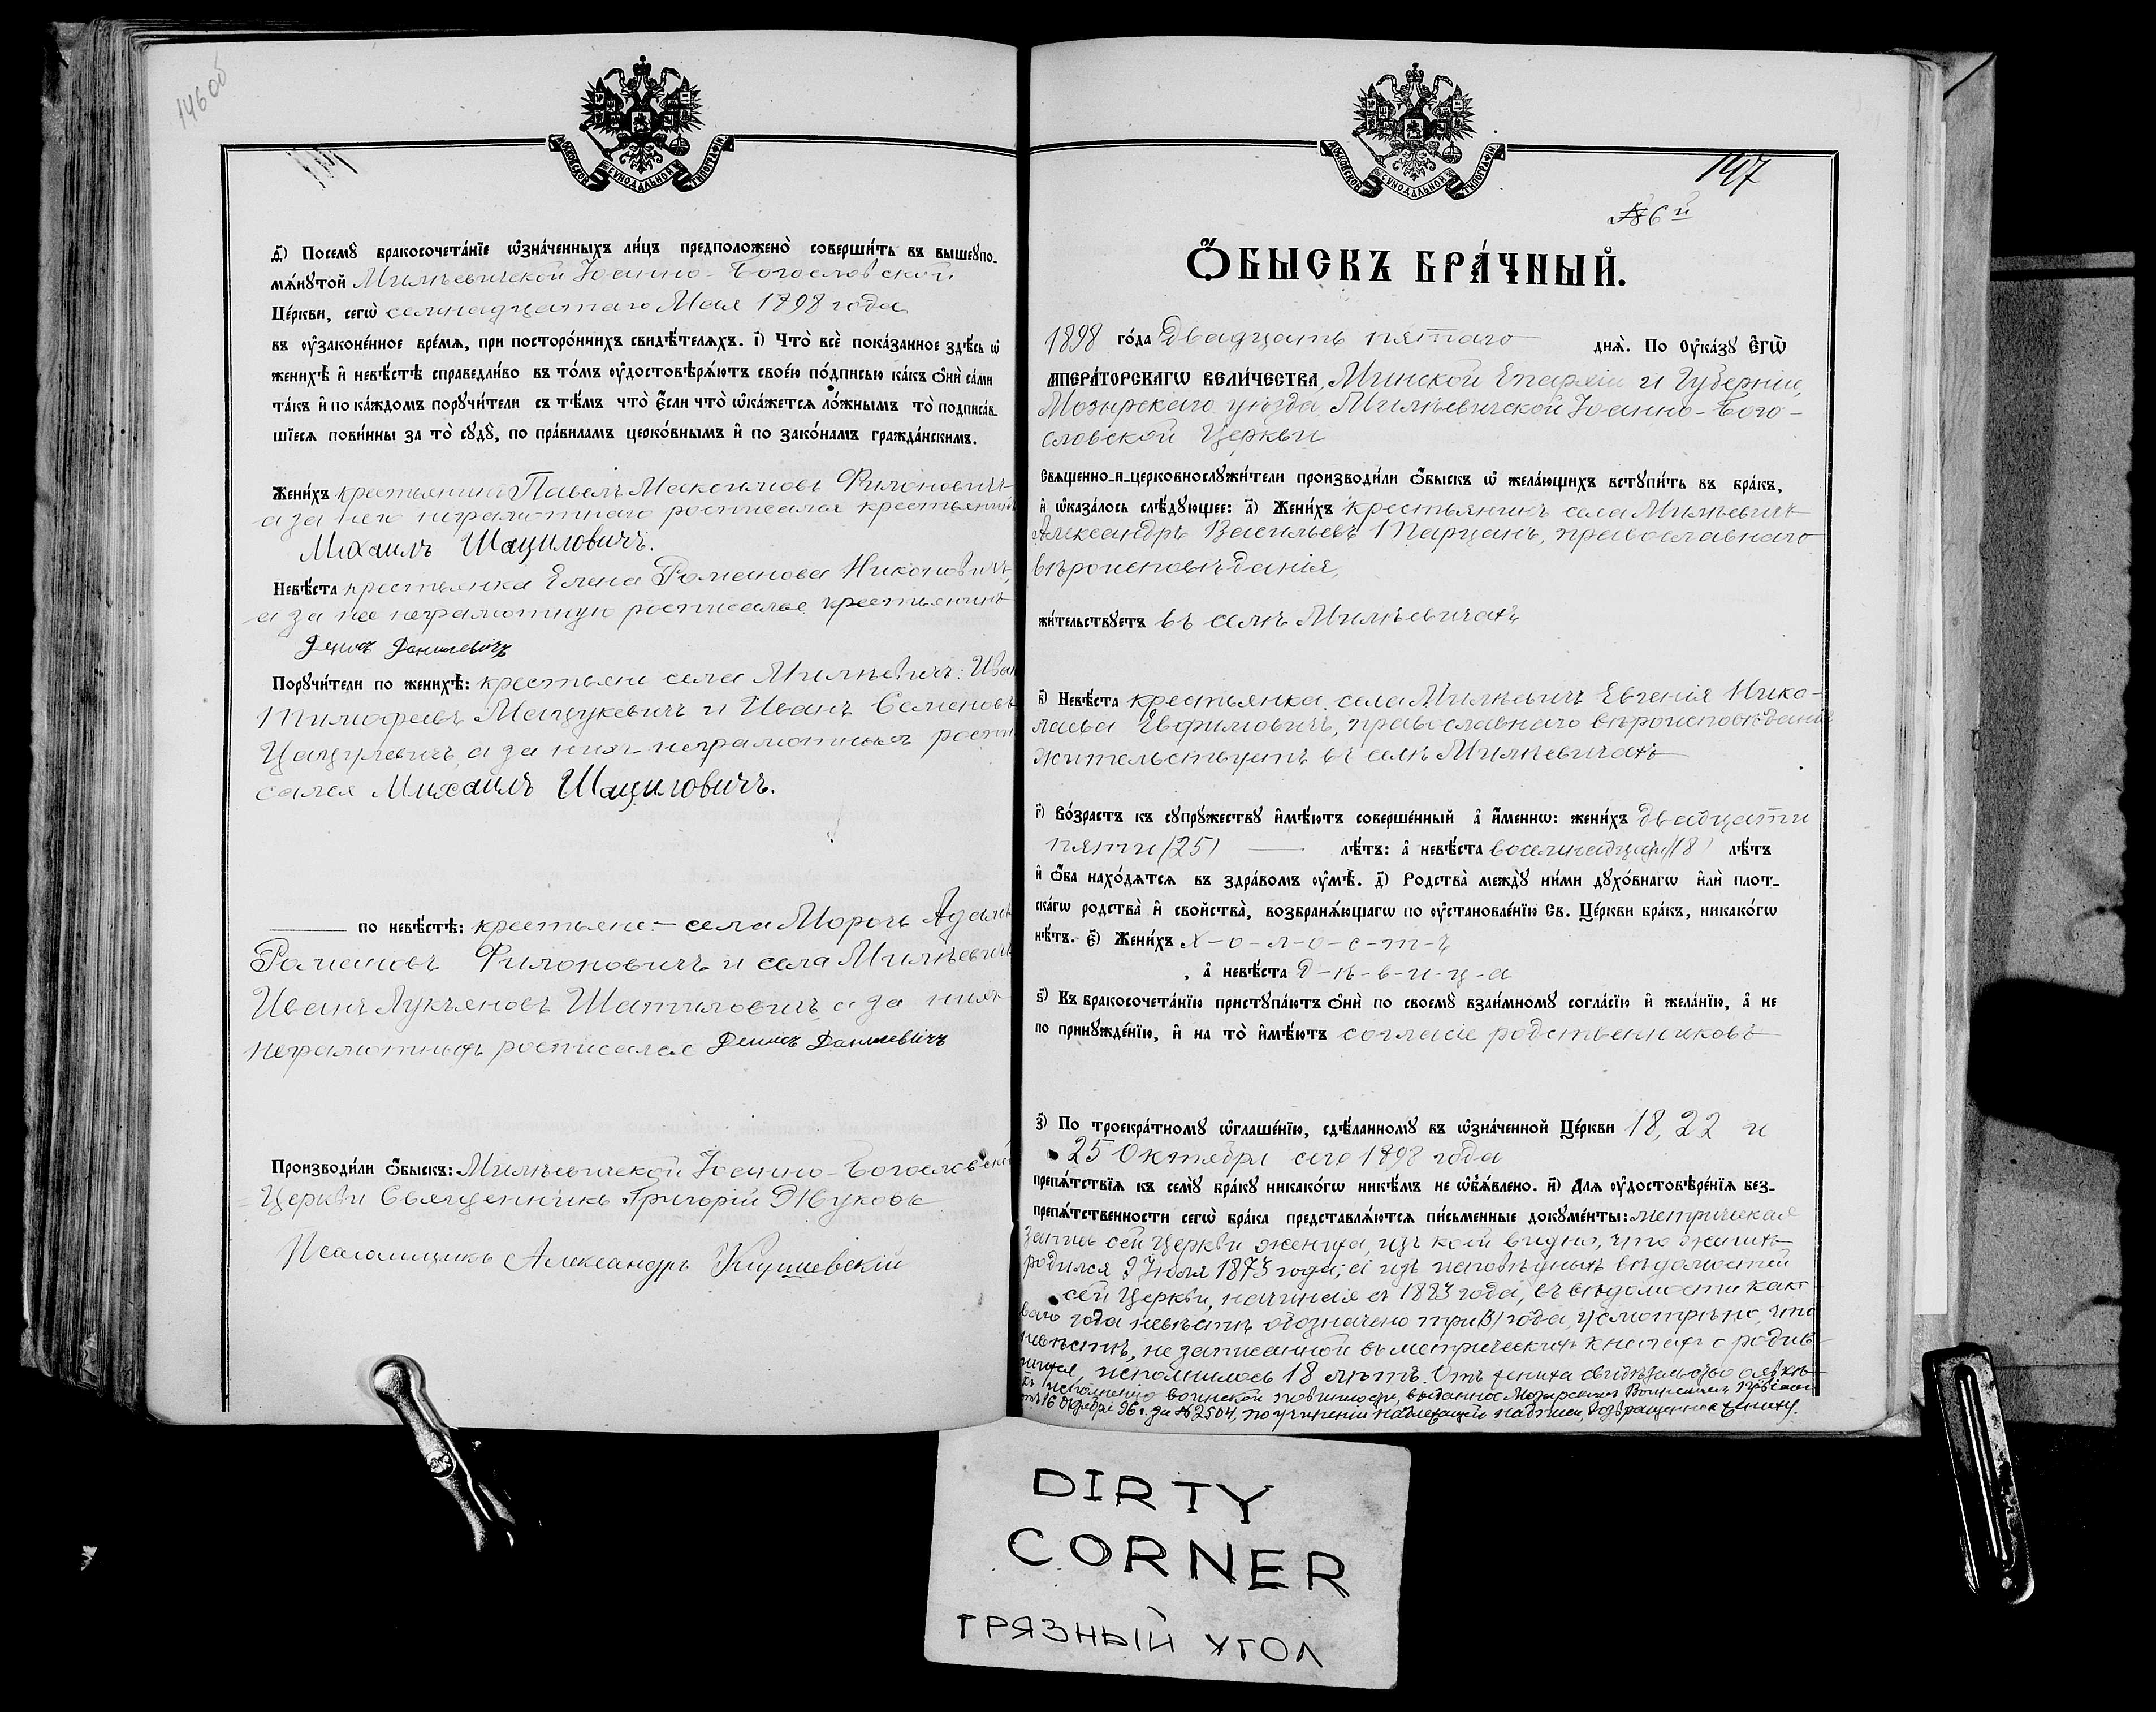 146об
МОСКОВСКОЙ СѴНОДАЛЬНОЙ ТИПОГРАФІИ
д҃) Посемꙋ̀ бракосочета́нїе ѡ҆зна́ченныхъ ли́цъ предположено̀ соверши́ть въ вышеꙋпо-
мѧ́нꙋтой Милѣевичской Іоанно-Богословской
Це́ркви, сегѡ̀ семнадцатаго Мая 1898 года
въ ᲂу҆зако́ненное вре́мѧ, при посторо́ннихъ свидѣ́телѧхъ. і҃) Что̀ всѐ пока́занное здѣ́сь ѡ҆
женихѣ̀ и҆ невѣ́стѣ справедли́во въ то́мъ ᲂу҆достовѣрѧ́ютъ свое́ю по́дписью ка́къ ѻ҆нѝ са́ми
та́къ и҆ по ка́ждомъ порꙋчи́тели съ тѣ́мъ что̀ є҆́сли что̀ ѡ҆ка́жетсѧ ло́жнымъ то̀ подписа́в-
шїесѧ пови́нны за то̀ сꙋдꙋ̀, по пра́виламъ церко́внымъ и҆ по зако́намъ гражда́нскимъ.
Жени́хъ крестьянинъ Павелъ Максимовъ Филоновичъ
а за него неграмотнаго росписался крестьянинъ
Михаилъ Шациловичъ.
Невѣ́ста крестьянка Елена Романова Никоновичъ,
а за нее неграмотную росписался крестьянинъ
Денисъ Данилевичъ
Порꙋчи́тели по женихѣ̀: крестьяне села Милѣевичъ: Иван
Тимофеевъ Мацукевичъ и Иванъ Семеновъ
Цацулевичъ, а за нихъ неграмотныхъ роспи
сался Михаилъ Шациловичъ.
по невѣ́стѣ: крестьяне:- села Морочь Адамъ
Романовъ Филоновичъ и села Милѣевичъ
Иванъ Лукъяновъ Шатиловичъ а за нихъ
неграмотныхъ росписался Денисъ Данилевичъ
Производи́ли ѻ҆́быскъ: Милѣевичской Іоанно-Богословской
Церкви Священникъ Григорій Жуковъ
Псаломщикъ Александръ
МОСКОВСКОЙ СѴНОДАЛЬНОЙ ТИПОГРАФІИ
147
№ 6й
Ѻ҆́БЫСКЪ БРА́ЧНЫЙ.
1898 го́да двадцать пятаго днѧ̀. По Оу҆ка́зꙋ Є҆гѡ̀
И҆МПЕРА́ТОРСКАГѠ ВЕЛИ́ЧЕСТВА, Минской Епархіи и Губерніи,
Мозырскаго уѣзда, Милѣевичской Іоанно-Бого-
словской Церкви
Свѧще́нно-и-церковнослꙋжи́тели производи́ли ѻ҆́быскъ ѡ҆ жела́ющихъ встꙋпи́ть въ бра́къ,
и҆ ѡ҆каза́лось слѣ́дꙋющее: а҃) Жени́хъ крестьянинъ села Милѣевичъ
Александръ Васильевъ Парцанъ, православнаго
вѣроисповѣданія,
жи́тельствꙋетъ въ селѣ Милѣевичахъ
в҃) Невѣ́ста крестьянка села Милѣевичъ Евгенія Нико-
лаева Евфимовичъ, православнаго вѣроисповѣданія
жительствуетъ въ селѣ Милѣевичахъ
г҃) Во́зрастъ къ сꙋпрꙋ́жествꙋ и҆мѣ́ютъ соверше́нный а҆ и҆́меннѡ: жени́хъ двадцати
пяти (25) лѣ́тъ: а҆ невѣ́ста восемнадцати (18) лѣ́тъ
и҆ ѻ҆́ба нахо́дѧтсѧ въ здра́вомъ ᲂу҆мѣ̀. д҃) Родства̀ междꙋ̀ ни́ми дꙋхо́внагѡ и҆лѝ плот-
ска́гѡ родства̀ и҆ сво́йства̀, возбранѧ́ющагѡ по ᲂу҆становле́нїю Св. Це́ркви бра́къ, никако́гѡ
нѣ́тъ. є҃) Жени́хъ х-о-л-о-с-т-ъ
, а҆ невѣ́ста д-ѣ-в-и-ц-а
ѕ҃) Къ бракосочета́нїю пристꙋпа́ютъ ѻ҆нѝ по своемꙋ̀ взаи́мномꙋ согла́сїю и҆ жела́нїю, а҆ не
по принꙋжде́нїю, и҆ на то̀ и҆мѣ́ютъ согласіе родственниковъ
з҃) По троекра́тномꙋ ѡ҆глаше́нїю, сдѣ́ланномꙋ въ ѡ҆зна́ченной Це́ркви 18, 22 и
25 Октября сего 1898 года
препѧ́тствїѧ къ семꙋ̀ бра́кꙋ никако́гѡ никѣ́мъ не ѡ҆б̾ѧ́влено. и҃) Длѧ ᲂу҆достовѣре́нїѧ без-
препѧ́тственности сегѡ̀ бра́ка представлѧ́ютсѧ пи́сьменные докꙋме́нты: метрическая
запись сей Церкви жениха, изъ коей видно, что женихъ
родился 9 Іюля 1873 года; а изъ исповѣдныхъ вѣдомостей
сей Церкви, начиная съ 1883 года, въ вѣдомости како-
ваго года невѣстѣ обозначено три (3) года, усмотрѣно, что
невѣстѣ, не записанной въ метрическихъ книгахъ о родив-
шихся, исполнилось 18 лѣтъ. Отъ жениха свидѣтельство о явкѣ
къ исполненію воинской повинности, выданное Мозырскимъ Воинскимъ
16 Октября 96 г. за № 2504, по учиненіи надлежащей надписи, возвращенное жениху.
DIRTY
CORNER
ГРЯЗНЫЙ УГОЛ